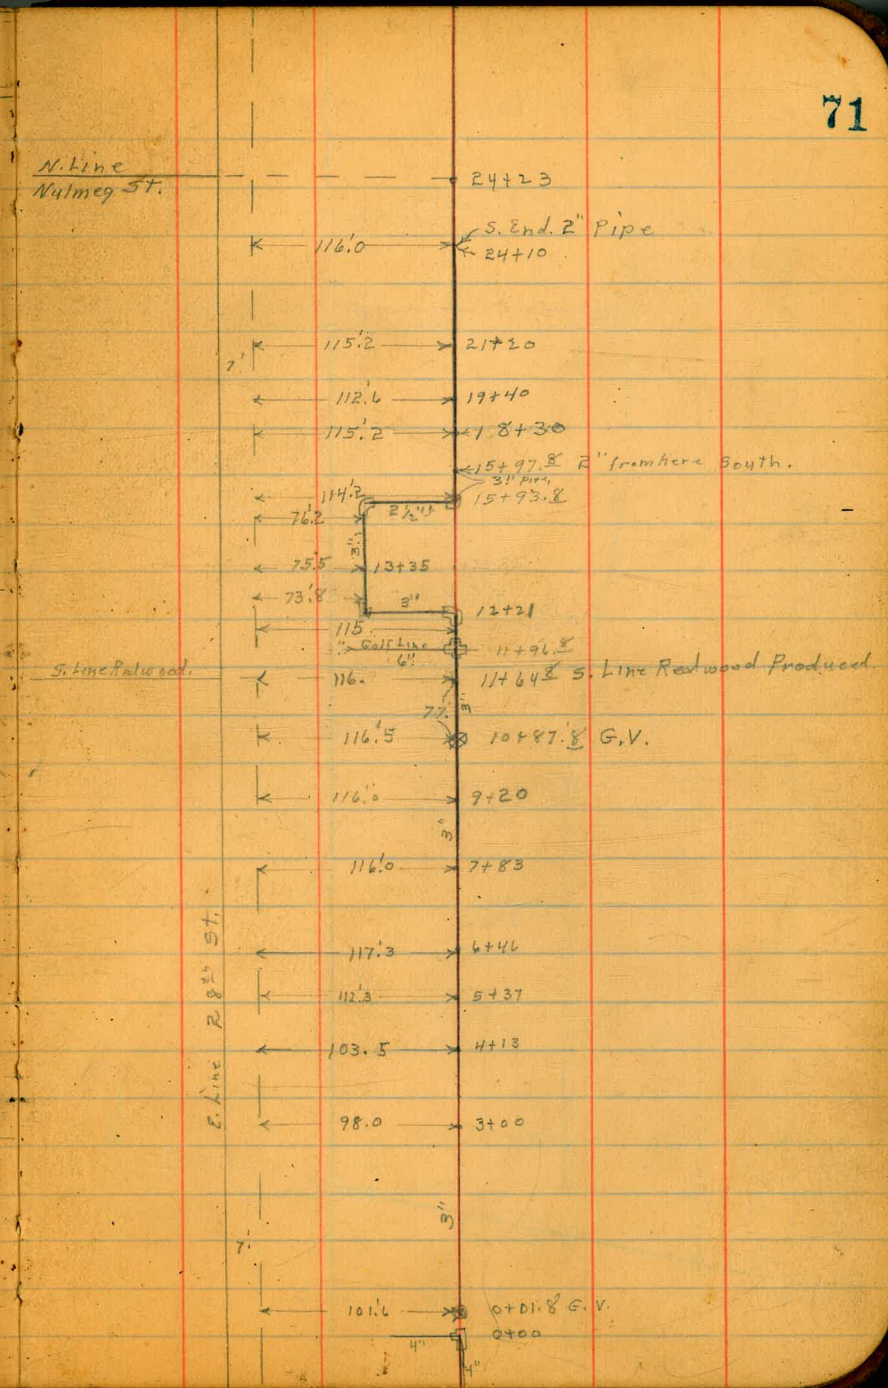 71
N. Line
Nutmeg St.
24+23
S. End. 2" Pipe
116.'0
24+10
115.'2
21+20
7'
112.'6
19+40
115.'2
18+30
15+97.8 2" from here South.
3" Pipe,
114.'2
15+93.8
2½"
76.'2
3"
75.'5
13+35
73.'8
3"
12+21
115
Golf Line
6"
11+96.8
S. Line Redwood.
116.
11+64.8 S. Line Redwood Produced
77.'
3"
116.'5
10+87.'8 G.V.
116.'0
9+20
3"
116.'0
7+83
117.'3
6+46
112.'3
5+37
103.5
4+13
E. Line 28th St.
98.0
3+00
3"
7'
101.'6
0+01.8 G.V.
0+00
4"
4"